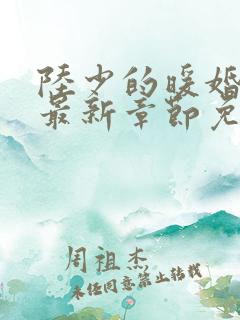 陸少的暖婚
最新章節免
周祖杰
未经同意禁止转载